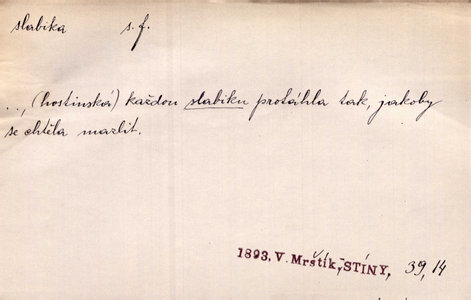 slabika s. f.
..., (hostinská) každou slabiku protáhla tak, jakoby
se chtěla mazlit.
1893, V. Mrštík, STÍNY, 39, 14